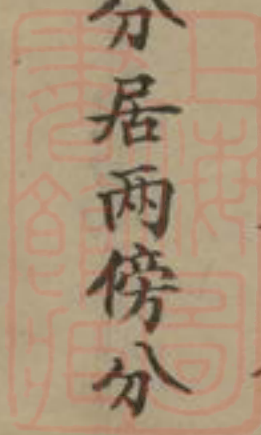 分居两傍分